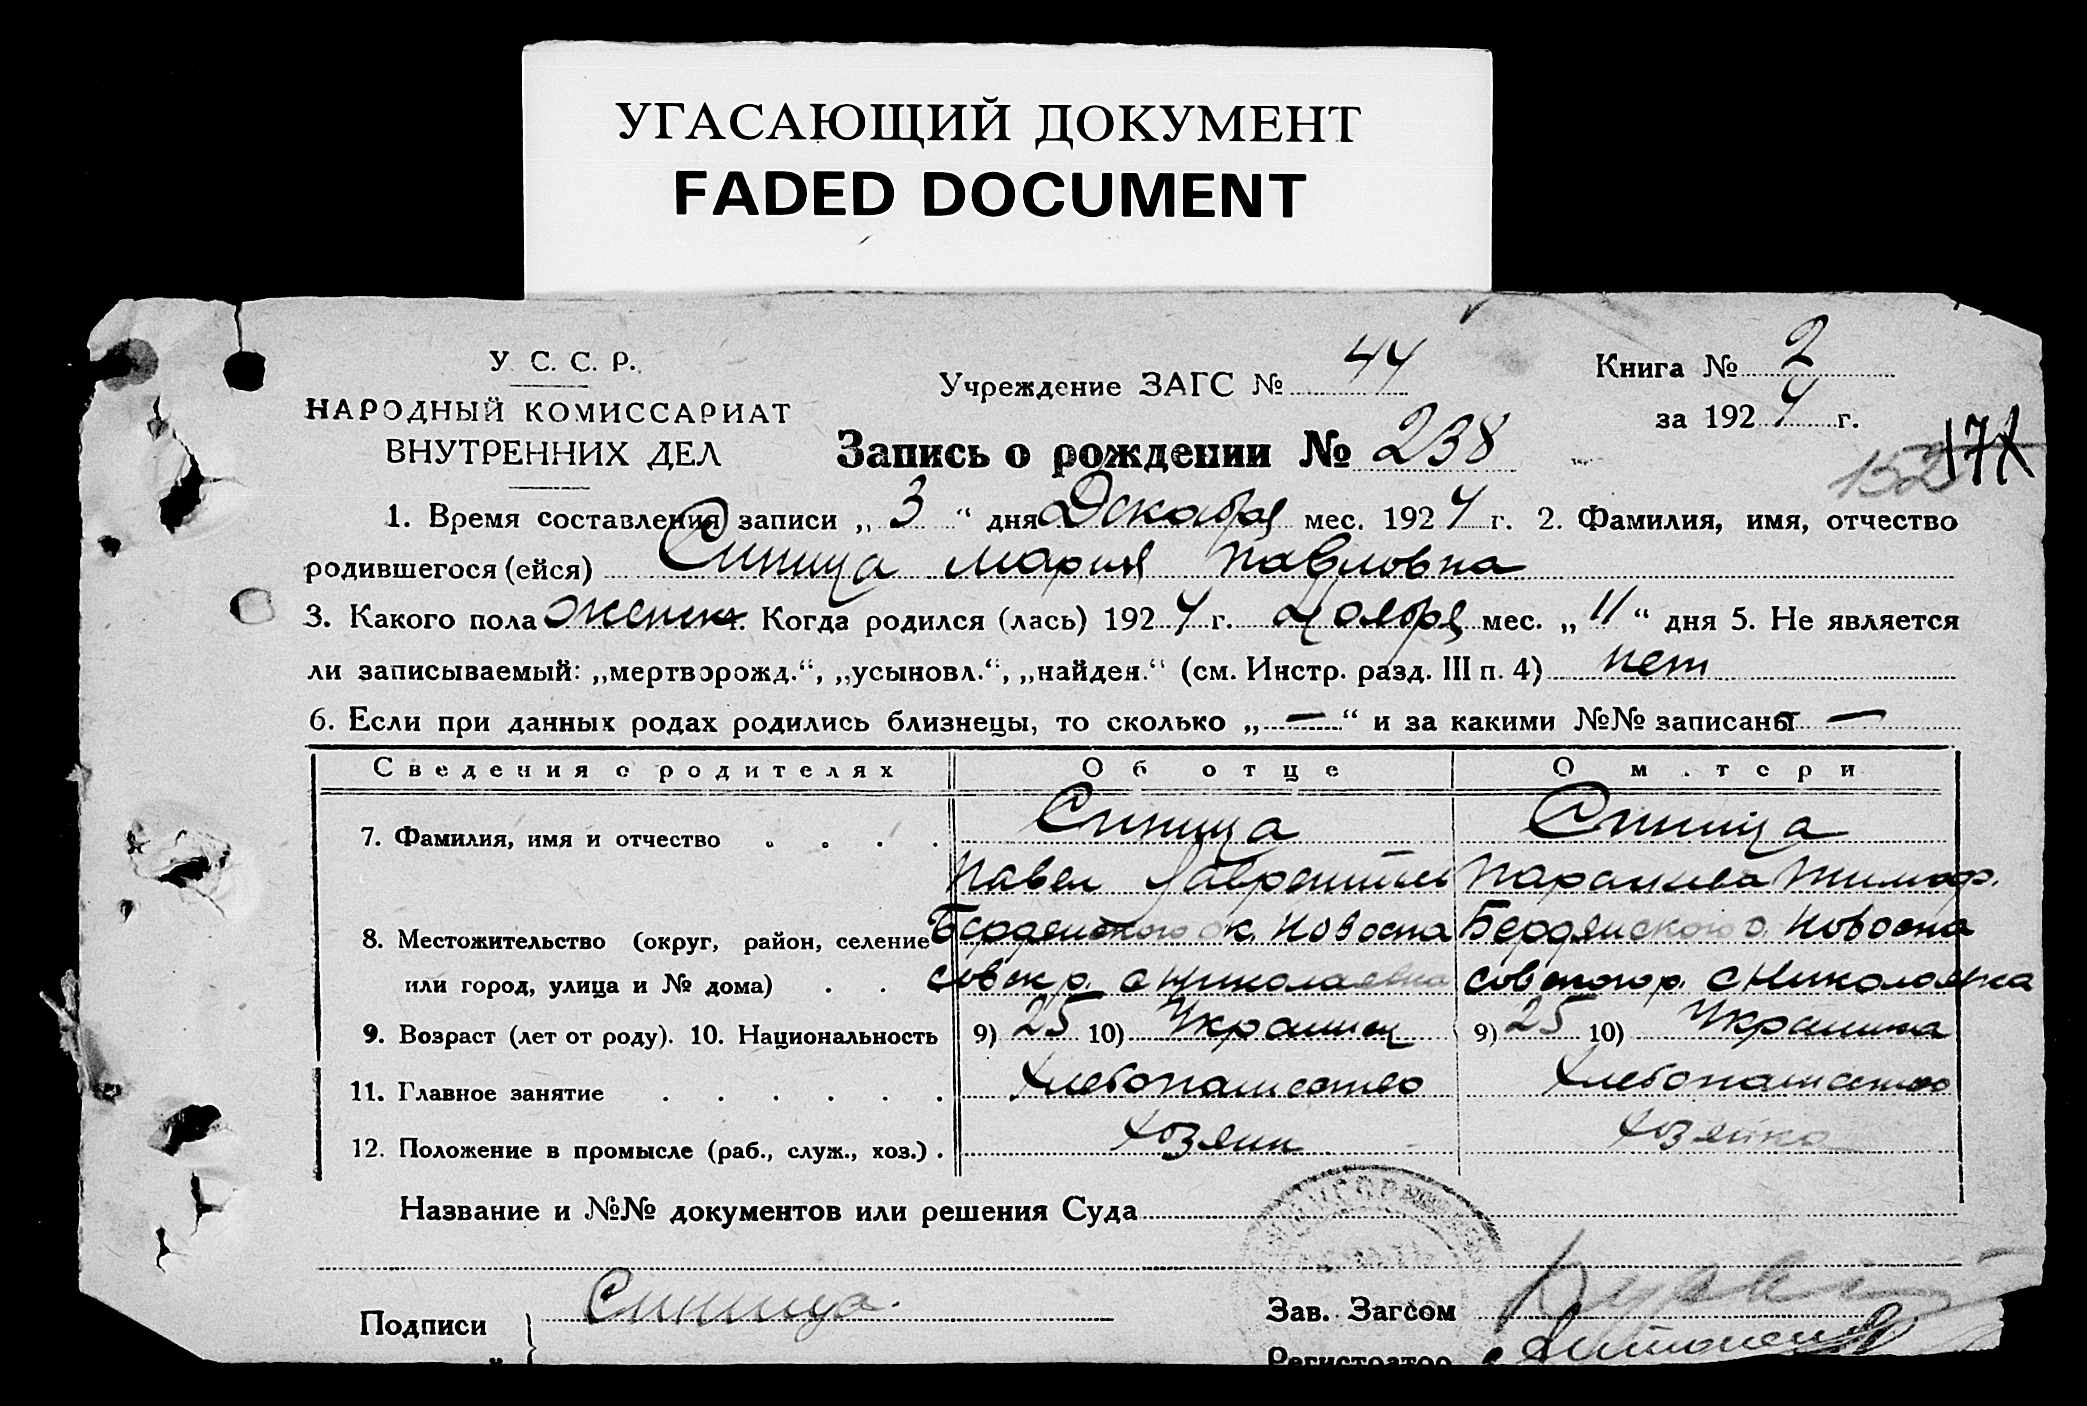 УГАСАЮЩИЙ ДОКУМЕНТ
FADED DOCUMENT
У. С. С. Р.
НАРОДНЫЙ КОМИССАРИАТ
ВНУТРЕННИХ ДЕЛ
Учреждение ЗАГС № 44
Книга № 2
за 1924 г.
Запись о рождении № 238
152 171
1. Время составления записи „ 3 “ дня Декабря мес. 1924 г. 2. Фамилия, имя, отчество
родившегося (ейся) Синица Мария Павловна
3. Какого пола женск 4. Когда родился (лась) 1924 г. Ноября мес. „ 11 “ дня 5. Не является
ли записываемый: „мертворожд.“, „усыновл.“, „найден.“ (см. Инстр. разд. III п. 4) нет
6. Если при данных родах родились близнецы, то сколько „ — “ и за какими №№ записаны —
Сведения о родителях Об отце О м.тери
7. Фамилия, имя и отчество . . . . Синица Синица
Павел Лаврентьев Параскева Тимоф.
8. Местожительство (округ, район, селение Бердянского ок. Новоспа Бердянского о. Новоспа
или город, улица и № дома) . . совск р. с Николаевка совского р. с Николаевка
9. Возраст (лет от роду). 10. Национальность 9) 25 10) Украинец 9) 25 10) Украинка
11. Главное занятие . . . . . . Хлебопашество Хлебопашество
12. Положение в промысле (раб., служ., хоз.) . Хозяин Хозяйка
Название и №№ документов или решения Суда
Подписи Синица. Зав. Загсом
Регистратор